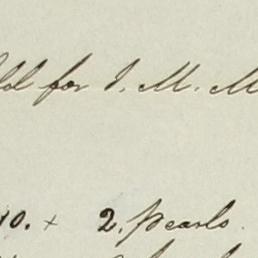 for I. M. M
10. × 2. Pearls.